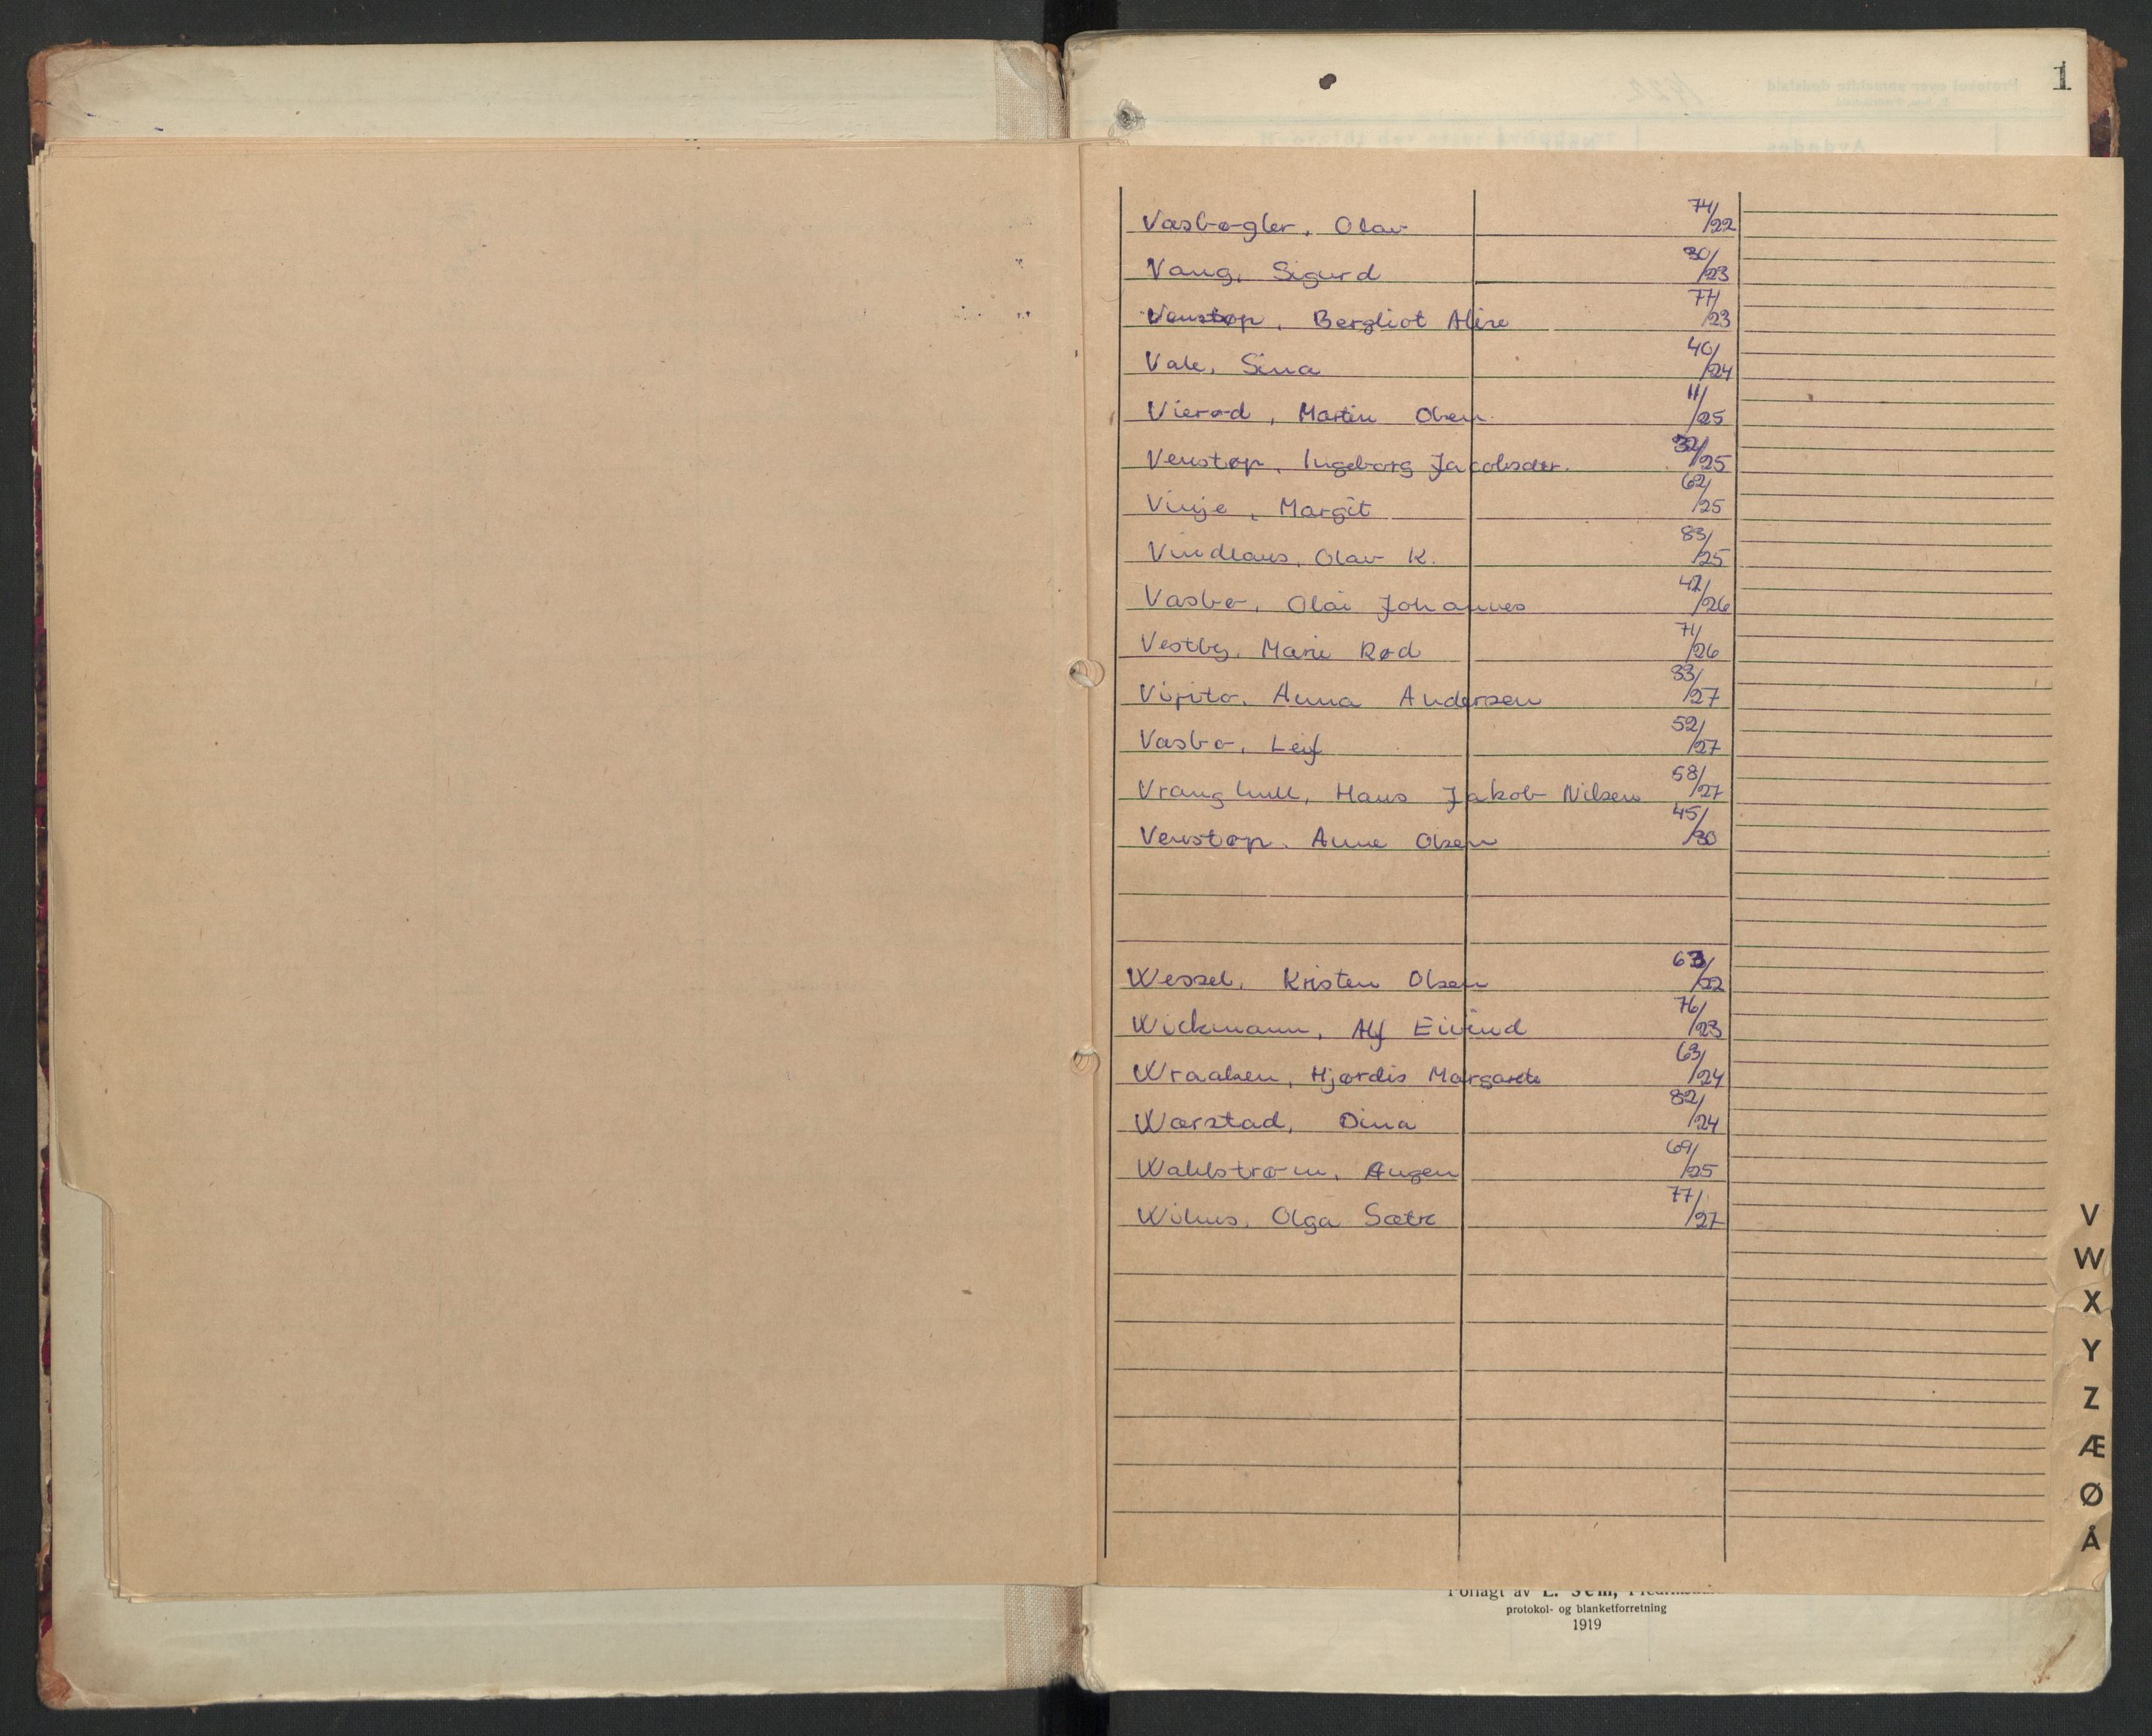 1
Vasbøgler, Olav 74/22
Vang, Sigurd 30/23
Venstøp, Bergliot Aline 77/23
Vale, Sina 40/24
Vierød, Martin Olsen 11/25
Venstøp, Ingeborg Jacobsdtr. 32/25
Vinje, Margit 62/25
Vindlaus, Olav K. 83/25
Vasbø, Olai Johannes 42/26
Vestby, Marie Rød 71/26
Anna Andersen 33/27
Vasbø, Leif 52/27
Hans Jakob Nilsen 58/27
Venstøp, Anne Olsen 45/30
Wessel, Kristen Olsen 63/22
Wickmann, Alf Eivind 76/23
Wraalsen, Hjørdis Margarete 63/24
Wærstad, Dina 82/24
Wahlstrøm, Augen 69/25
Olga Sætre 77/27
V
W
X
Y
Z
Æ
Ø
Å
Forlagt av E. Sem,
protokol- og blanketforretning
1919